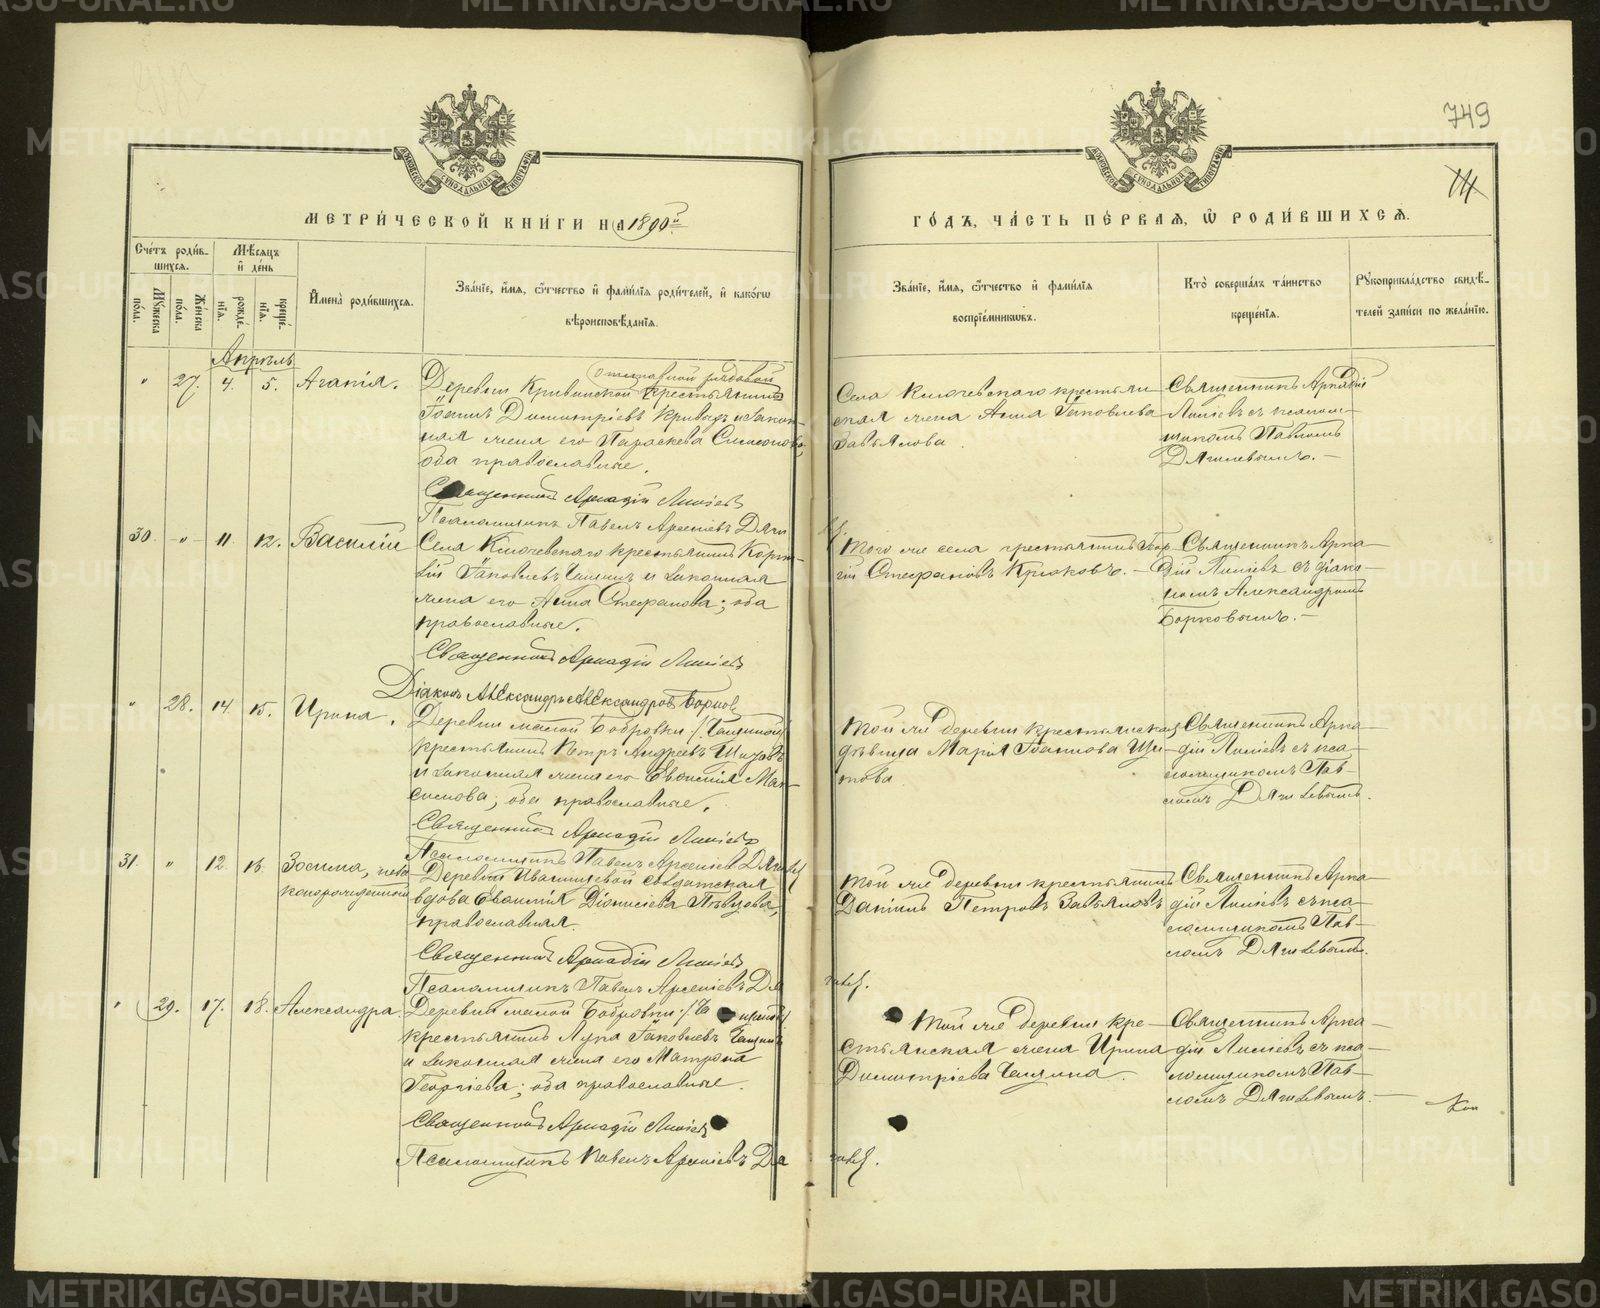 749
14
МЕТРИ́ЧЕСКОЙ КНИ́ГИ НА 1890й
ГО́ДЪ, ЧА́СТЬ ПЕ́РВАЯ, Ѡ РОДИ́ВШИХСЯ.
Сче́тъ роди́в-
шихся.
Мѣ́сяцъ
и де́нь
Му́жеска
по́ла.
Же́нска
по́ла.
рожде́-
нїя.
креще́-
нїя.
Имена̀ роди́вшихся.
Зва́нїе, и́мя, о́тчество и фами́лїя роди́телей, и како́гѡ
вѣроисповѣ́данїя.
Зва́нїе, и́мя, о́тчество и фами́лїя
воспрїе́мникѡвъ.
Кто̀ соверша́лъ та́инство
креще́нїя.
Рꙋкоприкла́дство свидѣ́-
телей за́писи по жела́нїю.
Апрѣль
" 27. 4. 5. Агапія.
отставной рядовой
Деревни Кривинской крестьянинъ
Іоаннъ Димитріевъ и закон-
ная жена его Параскева Симеонова,
оба православные.
Священникъ Аркадій
Псаломщикъ Павелъ Арсеніевъ Дяги
лев.
Села Ключевскаго крестьян-
ская жена Анна Іаковлева
Завьялова.
Священникъ Аркадій
съ псалом-
щикомъ Павломъ
Дягилевымъ.-
30. -"- 11. 12. Василій
Села Ключевскаго крестьянинъ
Іаковлевъ и законная
жена его Анна Стефанова; оба
православные.
Священникъ Аркадій
Діаконъ Александръ Александров Борков
Того же села крестьянинъ Геор-
гій Стефановъ Крюковъ. -
Священникъ Арка-
дій съ діако-
номъ Александромъ
Борковымъ.-
" 28. 14. 15. Ирина.
Деревни малой Бобровки
крестьянинъ Петръ Андреевъ Щиповъ
и законная жена его Евфимія Мак-
симова; оба православные.
Священникъ Аркадій
Псаломщикъ Павелъ Арсеніевъ Дягилев
Той же деревни крестьянская
дѣвица Марія Іоаннова Щи-
пова
Священникъ Арка-
дій съ пса-
ломщикомъ Пав-
ломъ Дягилевымъ.
31. " 12. 16. Зосима, неза-
коннорожденный
Деревни солдатская
вдова Евфимія Діонисіева Пѣвцова,
православная.
Священникъ Аркадій
Псаломщикъ Павелъ Арсеніевъ Дя
гилев.
Той же деревни крестьянинъ
Даніилъ Петровъ Завьяловъ
Священникъ Арка-
дій съ пса-
ломщикомъ Пав-
ломъ Дягилевымъ.
" 29. 17. 18. Александра.
Деревни малой Бобровки
крестьянинъ Лука Іаковлевъ
и законная жена его Матрона
Георгіева; оба православные.
Священникъ Аркадій
Псаломщикъ Павелъ Арсеніевъ Дя
гилев.
Той же деревни кре-
стьянская жена Ирина
Димитріева
Священникъ Арка-
дій съ пса-
ломщикомъ Пав-
ломъ Дягилевымъ.-